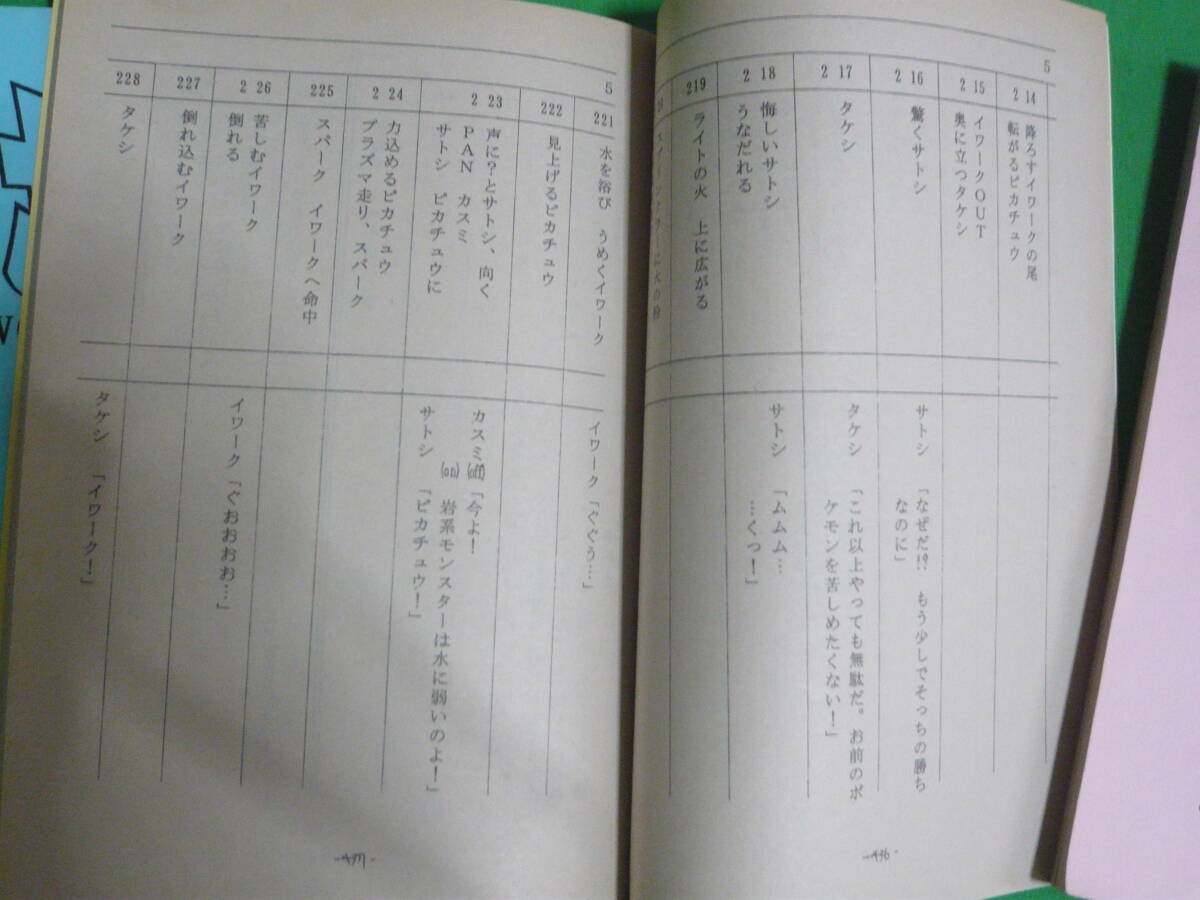 5
214
降ろすイワークの尾
転がるピカチュウ
215
イワークOUT
奥に立つタケシ
216
驚くサトシ
サトシ 「なぜだ!? もう少しでそっちの勝ち
なのに」
217
タケシ
タケシ 「これ以上やっても無駄だ。お前のポ
ケモンを苦しめたくない!」
218
悔しいサトシ
うなだれる
サトシ 「ムムム…
…くっ!」
219
ライトの火 上に広がる
-A36-
5
221
水を浴び うめくイワーク
イワーク「ぐぐう…」
222
見上げるピカチュウ
223
声に?とサトシ、向く
PAN カスミ
サトシ ピカチュウに
カスミ(off)「今よ!
(on) 岩系モンスターは水に弱いのよ!」
サトシ 「ピカチュウ!」
224
力込めるピカチュウ
プラズマ走り、スパーク
225
スパーク イワークへ命中
226
苦しむイワーク
倒れる
イワーク「ぐおおおお…」
227
倒れ込むイワーク
228
タケシ
タケシ 「イワーク!」
-A37-